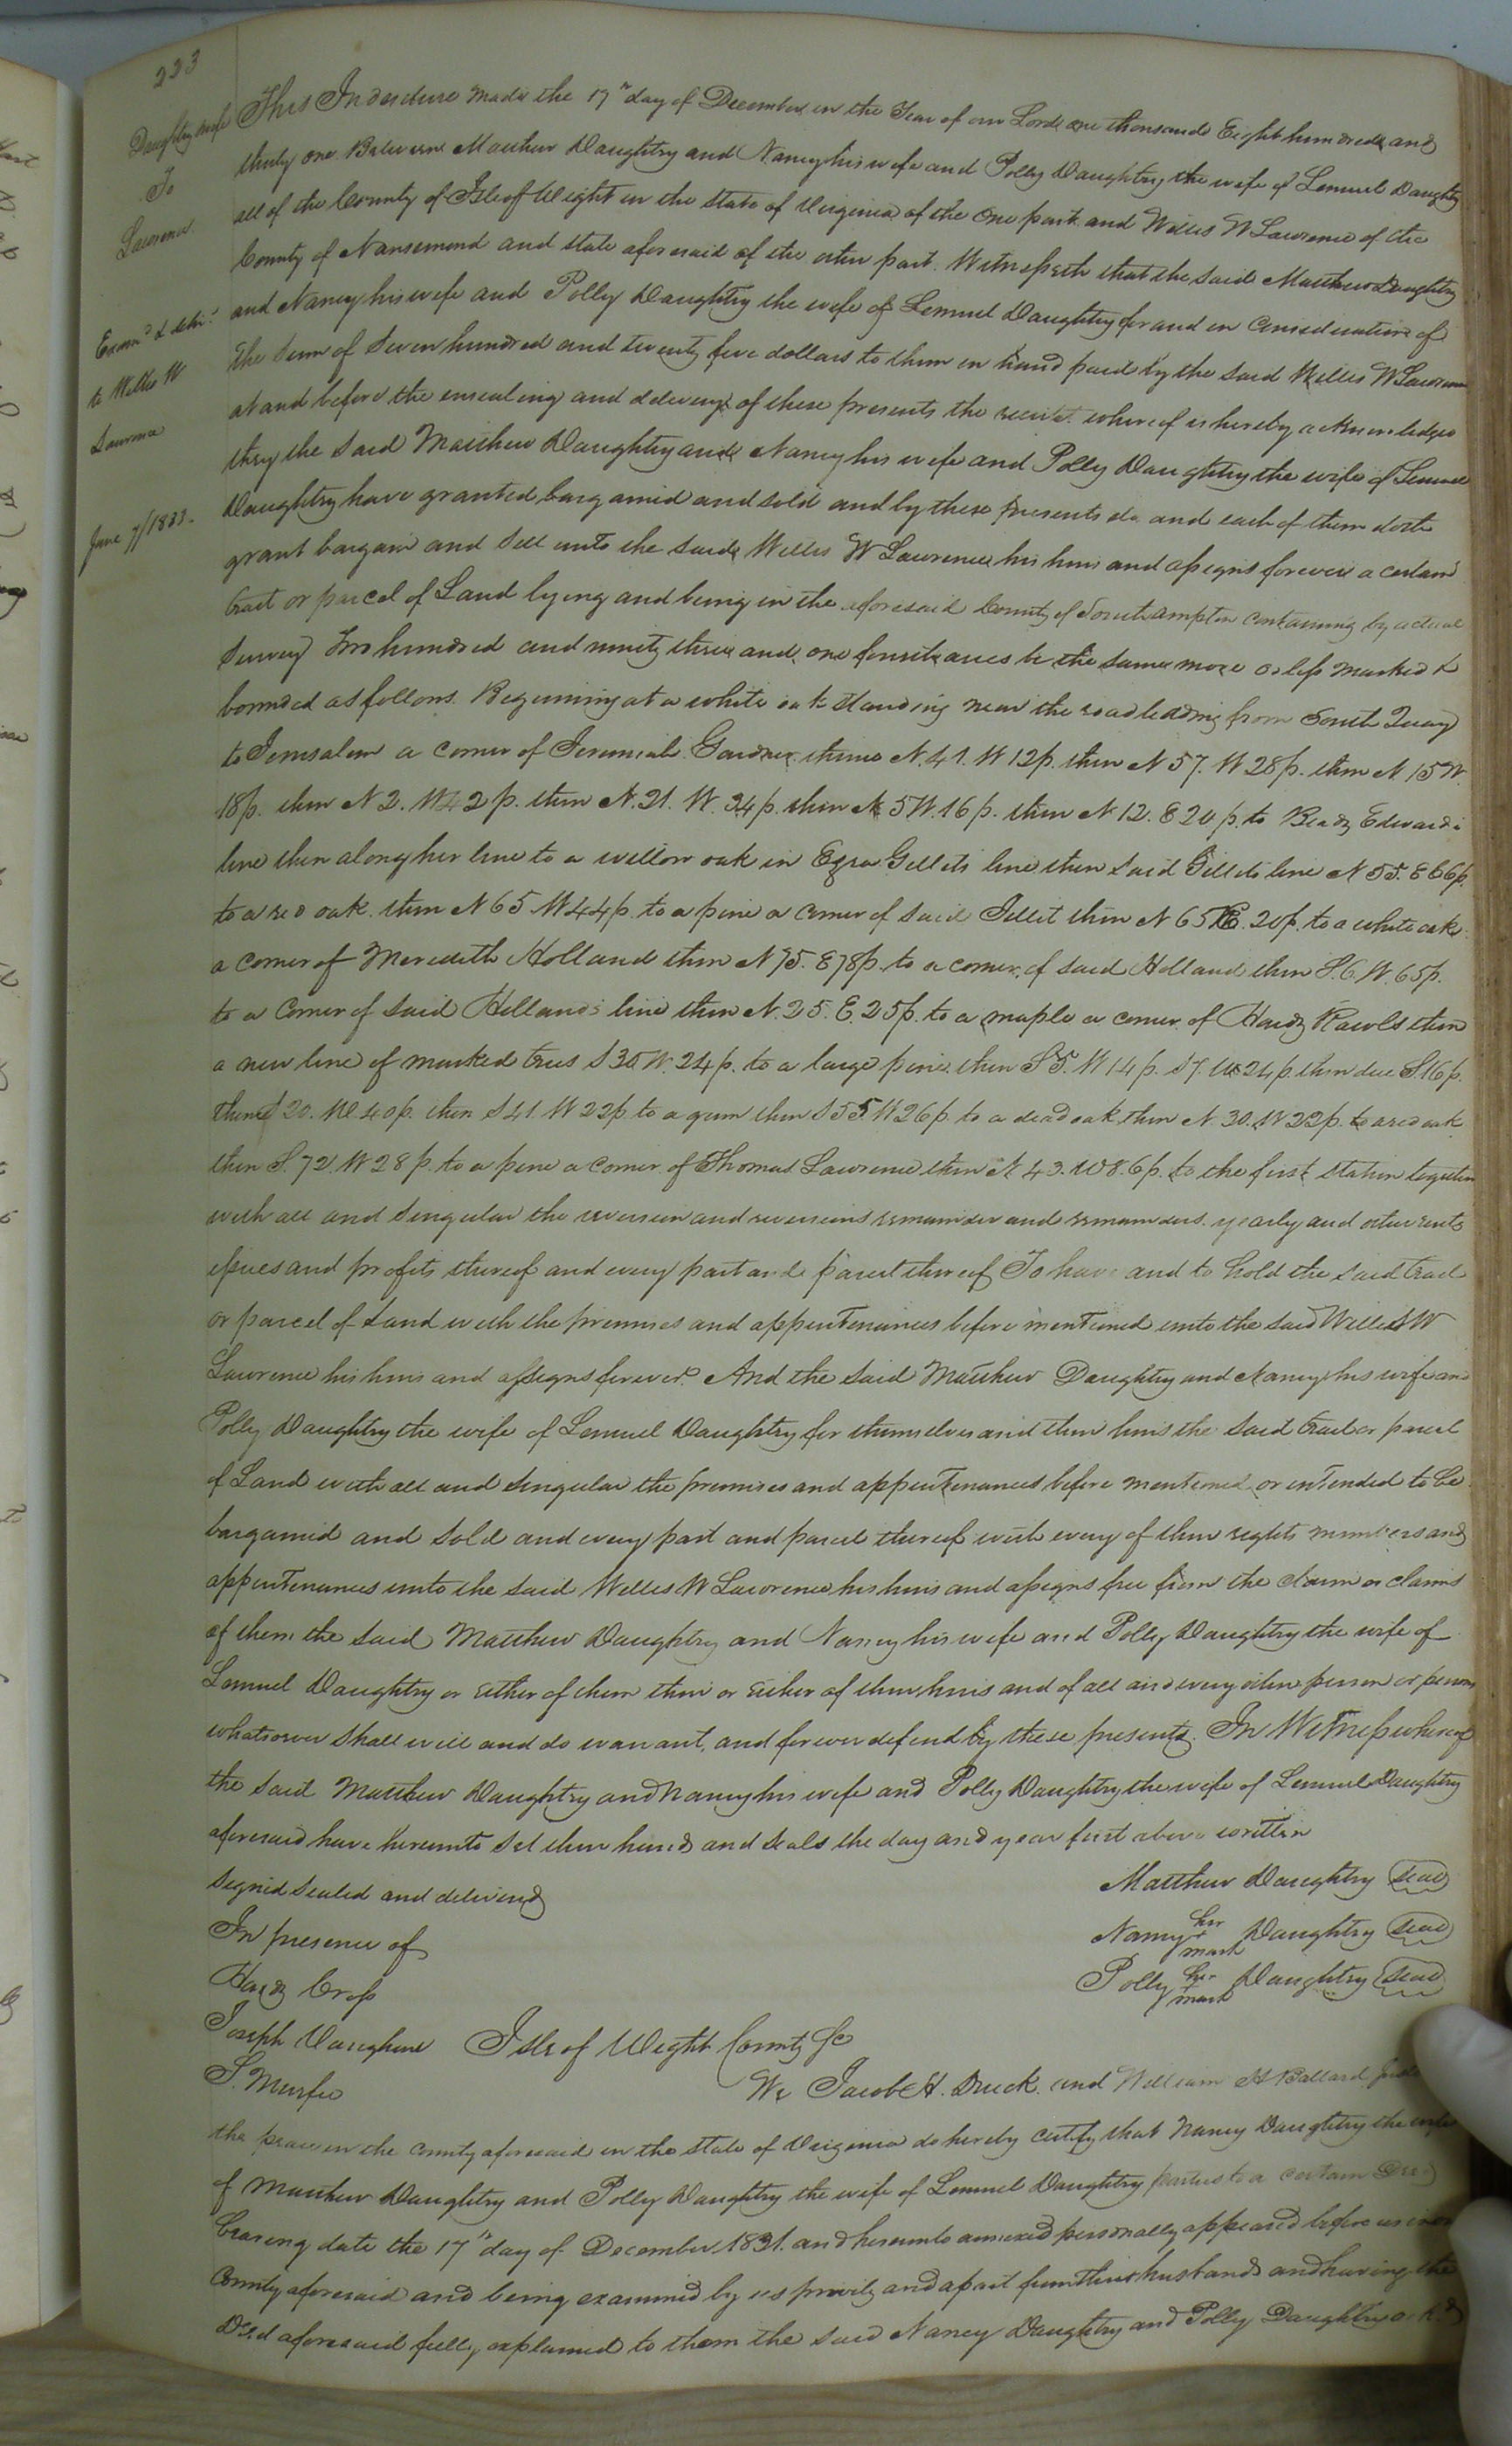 223
Daughtry & wife
To
Lawrence
Exam.d & deliv.d
to Willis W
Lawrence
June 7/1833.
This Indenture made the 17th day of December in the Year of our Lord one thousand Eight hundred and
thirty one Between Matthew Daughtry and Nancy his wife and Polly Daughtry the wife of Lemuel Daughtry
all of the County of Isle of Wight in the State of Virginia of the One part and Willis W Lawrence of the
County of Nansemond and state aforesaid of the other part. Witnesseth that the said Matthew Daughtry
and Nancy his wife and Polly Daughtry the wife of Lemuel Daughtry for and in Consideration of
the sum of Seven hundred and twenty five dollars to them in hand paid by the said Willis W Lawrence
at and before the ensealing and delivery of these presents the receipt whereof is hereby acknowledged
they the said Matthew Daughtry and Nancy his wife and Polly Daughtry the wife of Lemuel
Daughtry have granted bargained and sold and by these presents do and each of them doth
grant bargain and Sell unto the said Willis W Lawrence his heirs and assigns forever a certain
tract or parcel of Land lying and being in the aforesaid County of Southampton containing by actual
Survey Two hundred and ninety three and one fourth acres be the same more or less marked &
bounded as follows. Beginning at a white oak standing near the road leading from South Quay
to Jerusalem a corner of Jeremiah Gardner thence N. 41. W 12p. then N 57. W 28p. then N 15 W.
18p. then N 2. W 42 p. then N. 21. W. 34p. then N. 5 W. 16 p. then N 12. E 20 p. to Beady Edwards
line then along her line to a willow oak in Ezra Gillets line then said Gillets line N 55. E 66p.
to a red oak. then N 65 W 44p. to a pine a corner of said Jillet then N 65 E. 20p. to a white oak
a corner of Meredith Holland then N 75. E 78p. to a corner of said Holland then S. 6. W. 65p.
to a Corner of said Hollands line then N. 25. E. 25p. to a maple a corner of Hardy Rawls then
a new line of marked trees S 30 W. 24p. to a large pine. then S 5. W 14p. S 7. W 24p. then due S. 16p.
then S 20. W 40p. then S 41. W 22p. to a gum then S 55. W 26p. to a dead oak then N. 30. W 22p. to a red oak
then S. 72. W 28 p. to a pine a corner of Thomas Lawrence then N 43. W 8.6p. to the first station together
with all and singular the reversion and reversions remainder and remainders yearly and other rents
issues and profits thereof and every part and parcel thereof To have and to hold the said tract
or parcel of Land with the premises and appurtenances before mentioned unto the said Willis W
Lawrence his heirs and assigns forever. And the said Matthew Daughtry and Nancy his wife and
Polly Daughtry the wife of Lemuel Daughtry for themselves and their heirs the said tract or parcel
of Land with all and singular the premises and appurtenances before mentioned or intended to be
bargained and sold and every part and parcel thereof with every of their rights members and
appurtenances unto the said Willis W Lawrence his heirs and assigns free from the claim or claims
of them the said Matthew Daughtry and Nancy his wife and Polly Daughtry the wife of
Lemuel Daughtry or either of them their or either of their heirs and of all and every other person or persons
whatsoever shall will and do warrant, and forever defend by these presents. In Witness whereof
the said Matthew Daughtry and Nancy his wife and Polly Daughtry the wife of Lemuel Daughtry
aforesaid have hereunto set their hands and seals the day and year first above written
Signed sealed and delivered
In presence of
Hardy Cross
Joseph Vaughan
S. Murfee
Matthew Daughtry Seal
Nancy her + mark Daughtry Seal
Polly her + mark Daughtry Seal
Isle of Wight County Sc
We Jacob H. Duck. and William H Ballard
the peace in the County aforesaid in the State of Virginia do hereby certify that Nancy Daughtry the wife
of Matthew Daughtry and Polly Daughtry the wife of Lemuel Daughtry parties to a certain Deed
bearing date the 17th day of December 1831. and hereunto annexed personally appeared before us in our
County aforesaid and being examined by us privily and apart from their husbands and having the
Deed aforesaid fully explained to them the said Nancy Daughtry and Polly Daughtry